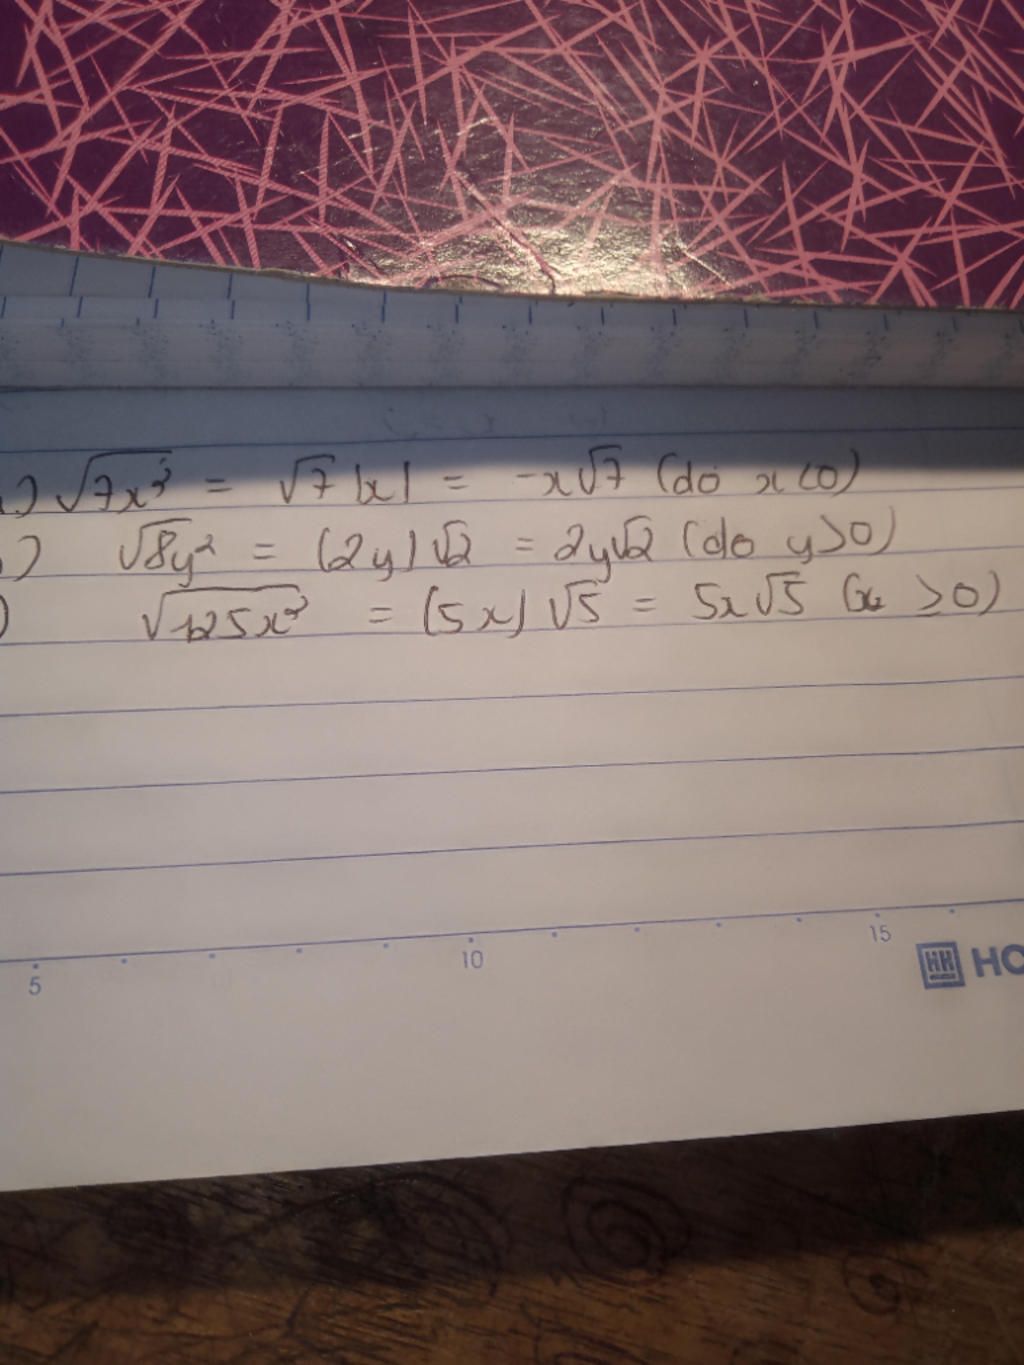 .) √7x² = √7 |x| = -x√7 (do x<0)
) √8y² = |2y| √2 = 2y√2 (do y>0)
) √125x² = |5x| √5 = 5x√5 (x ≥0)
5 10 15 HH HO